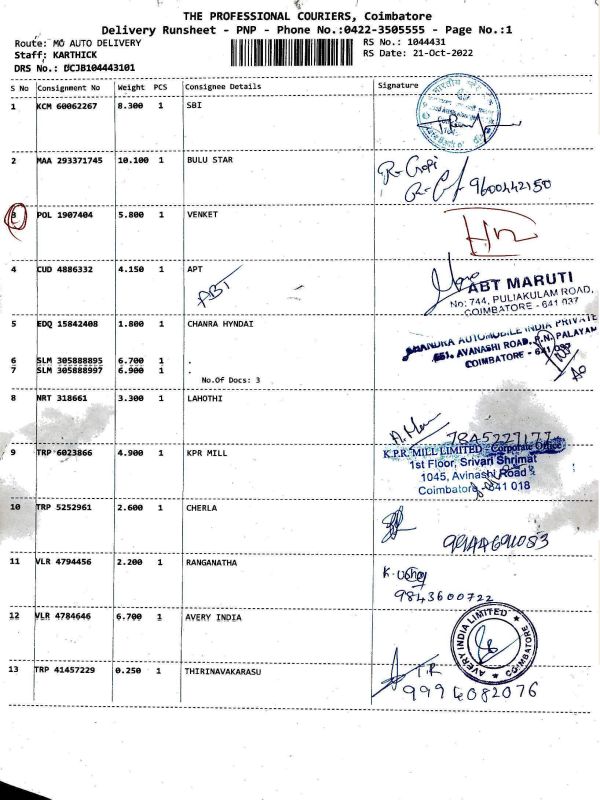 THE PROFESSIONAL COURIERS, Coimbatore
Delivery Runsheet - PNP - Phone No.:0422-3505555 - Page No.:1
Route: MO AUTO DELIVERY
RS No.: 1044431
Staff: KARTHICK
RS Date: 21-Oct-2022
DRS No.: DCJB104443101
S No Consignment No Weight PCS Consignee Details Signature
1 KCM 60062267 8.300 1 SBI
2 MAA 293371745 10.100 1 BULU STAR
R-Gopi
9600442150
3 POL 1907404 5.800 1 VENKET
4 CUD 4886332 4.150 1 APT
ABT
ABT MARUTI
No: 744, PULIAKULAM ROAD,
COIMBATORE - 641 037
5 EDQ 15842408 1.800 1 CHANRA HYNDAI
CHANDRA AUTOMOBILE INDIA PRIVATE
AVANASHI ROAD, P.N. PALAYAM
COIMBATORE - 641
6 SLM 305888895 6.700 1 .
7 SLM 305888997 6.900 1 .
No.Of Docs: 3
8 NRT 318661 3.300 1 LAHOTHI
7845227177
9 TRP 6023866 4.900 1 KPR MILL
K.P.R. MILL LIMITED - Corporate Office
1st Floor, Srivari Shrimat
1045, Avinashi Road
Coimbatore - 641 018
10 TRP 5252961 2.600 1 CHERLA
9944691083
11 VLR 4794456 2.200 1 RANGANATHA
9843600722
12 VLR 4784646 6.700 1 AVERY INDIA
AVERY INDIA LIMITED
COIMBATORE
13 TRP 41457229 0.250 1 THIRINAVAKARASU
T.R
9994082076